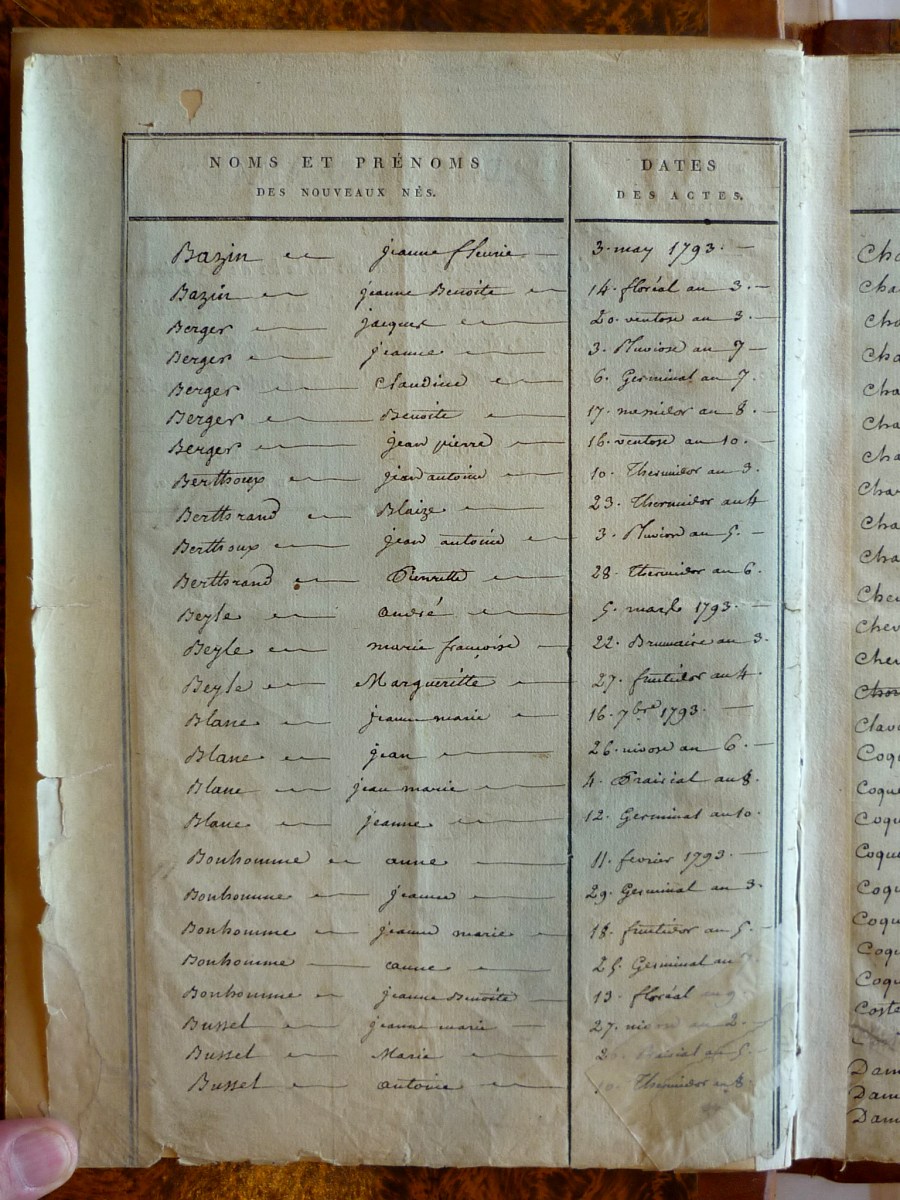 NOMS ET PRÉNOMS
DES NOUVEAUX NÉS.
DATES
DES ACTES.
Bazin jeanne fleurie 3. may 1793.
Bazin jeanne Benoite 14. floréal an 3.
Berger jacques 20. ventose an 3.
Berger jeanne 3. Pluviose an 7
Berger Claudine 6. Germinal an 7.
Berger Benoite 17. messidor an 8.
Berger jean pierre 16. ventose an 10.
Berthoux jean antoine 10. Thermidor an 3.
Berthrand Blaize 23. Thermidor an 4
Berthoux jean antoine 3. Pluviose an 5.
Berthrand Pierrette 28. Thermidor an 6.
Beyle andré 5. mars 1793.
Beyle marie françoise 22. Brumaire an 3.
Beyle Margueritte 27. fructidor an 4.
Blanc jeanne marie 16. 7bre 1793.
Blanc jean 26. nivose an 6.
Blanc jean marie 4. Prairial an 8.
Blanc jeanne 12. Germinal an 10.
Bonhomme anne 11. fevrier 1793.
Bonhomme jeanne 29. Germinal an 3.
Bonhomme jeanne marie 18. fructidor an 5.
Bonhomme anne 25. Germinal an
Bonhomme jeanne Benoite 13. floréal an 9.
Bussel jeanne marie 27. nivose an 2.
Bussel Marie Prairial an 5.
Bussel antoine Thermidor an 8.
Coque
Coque
Coque